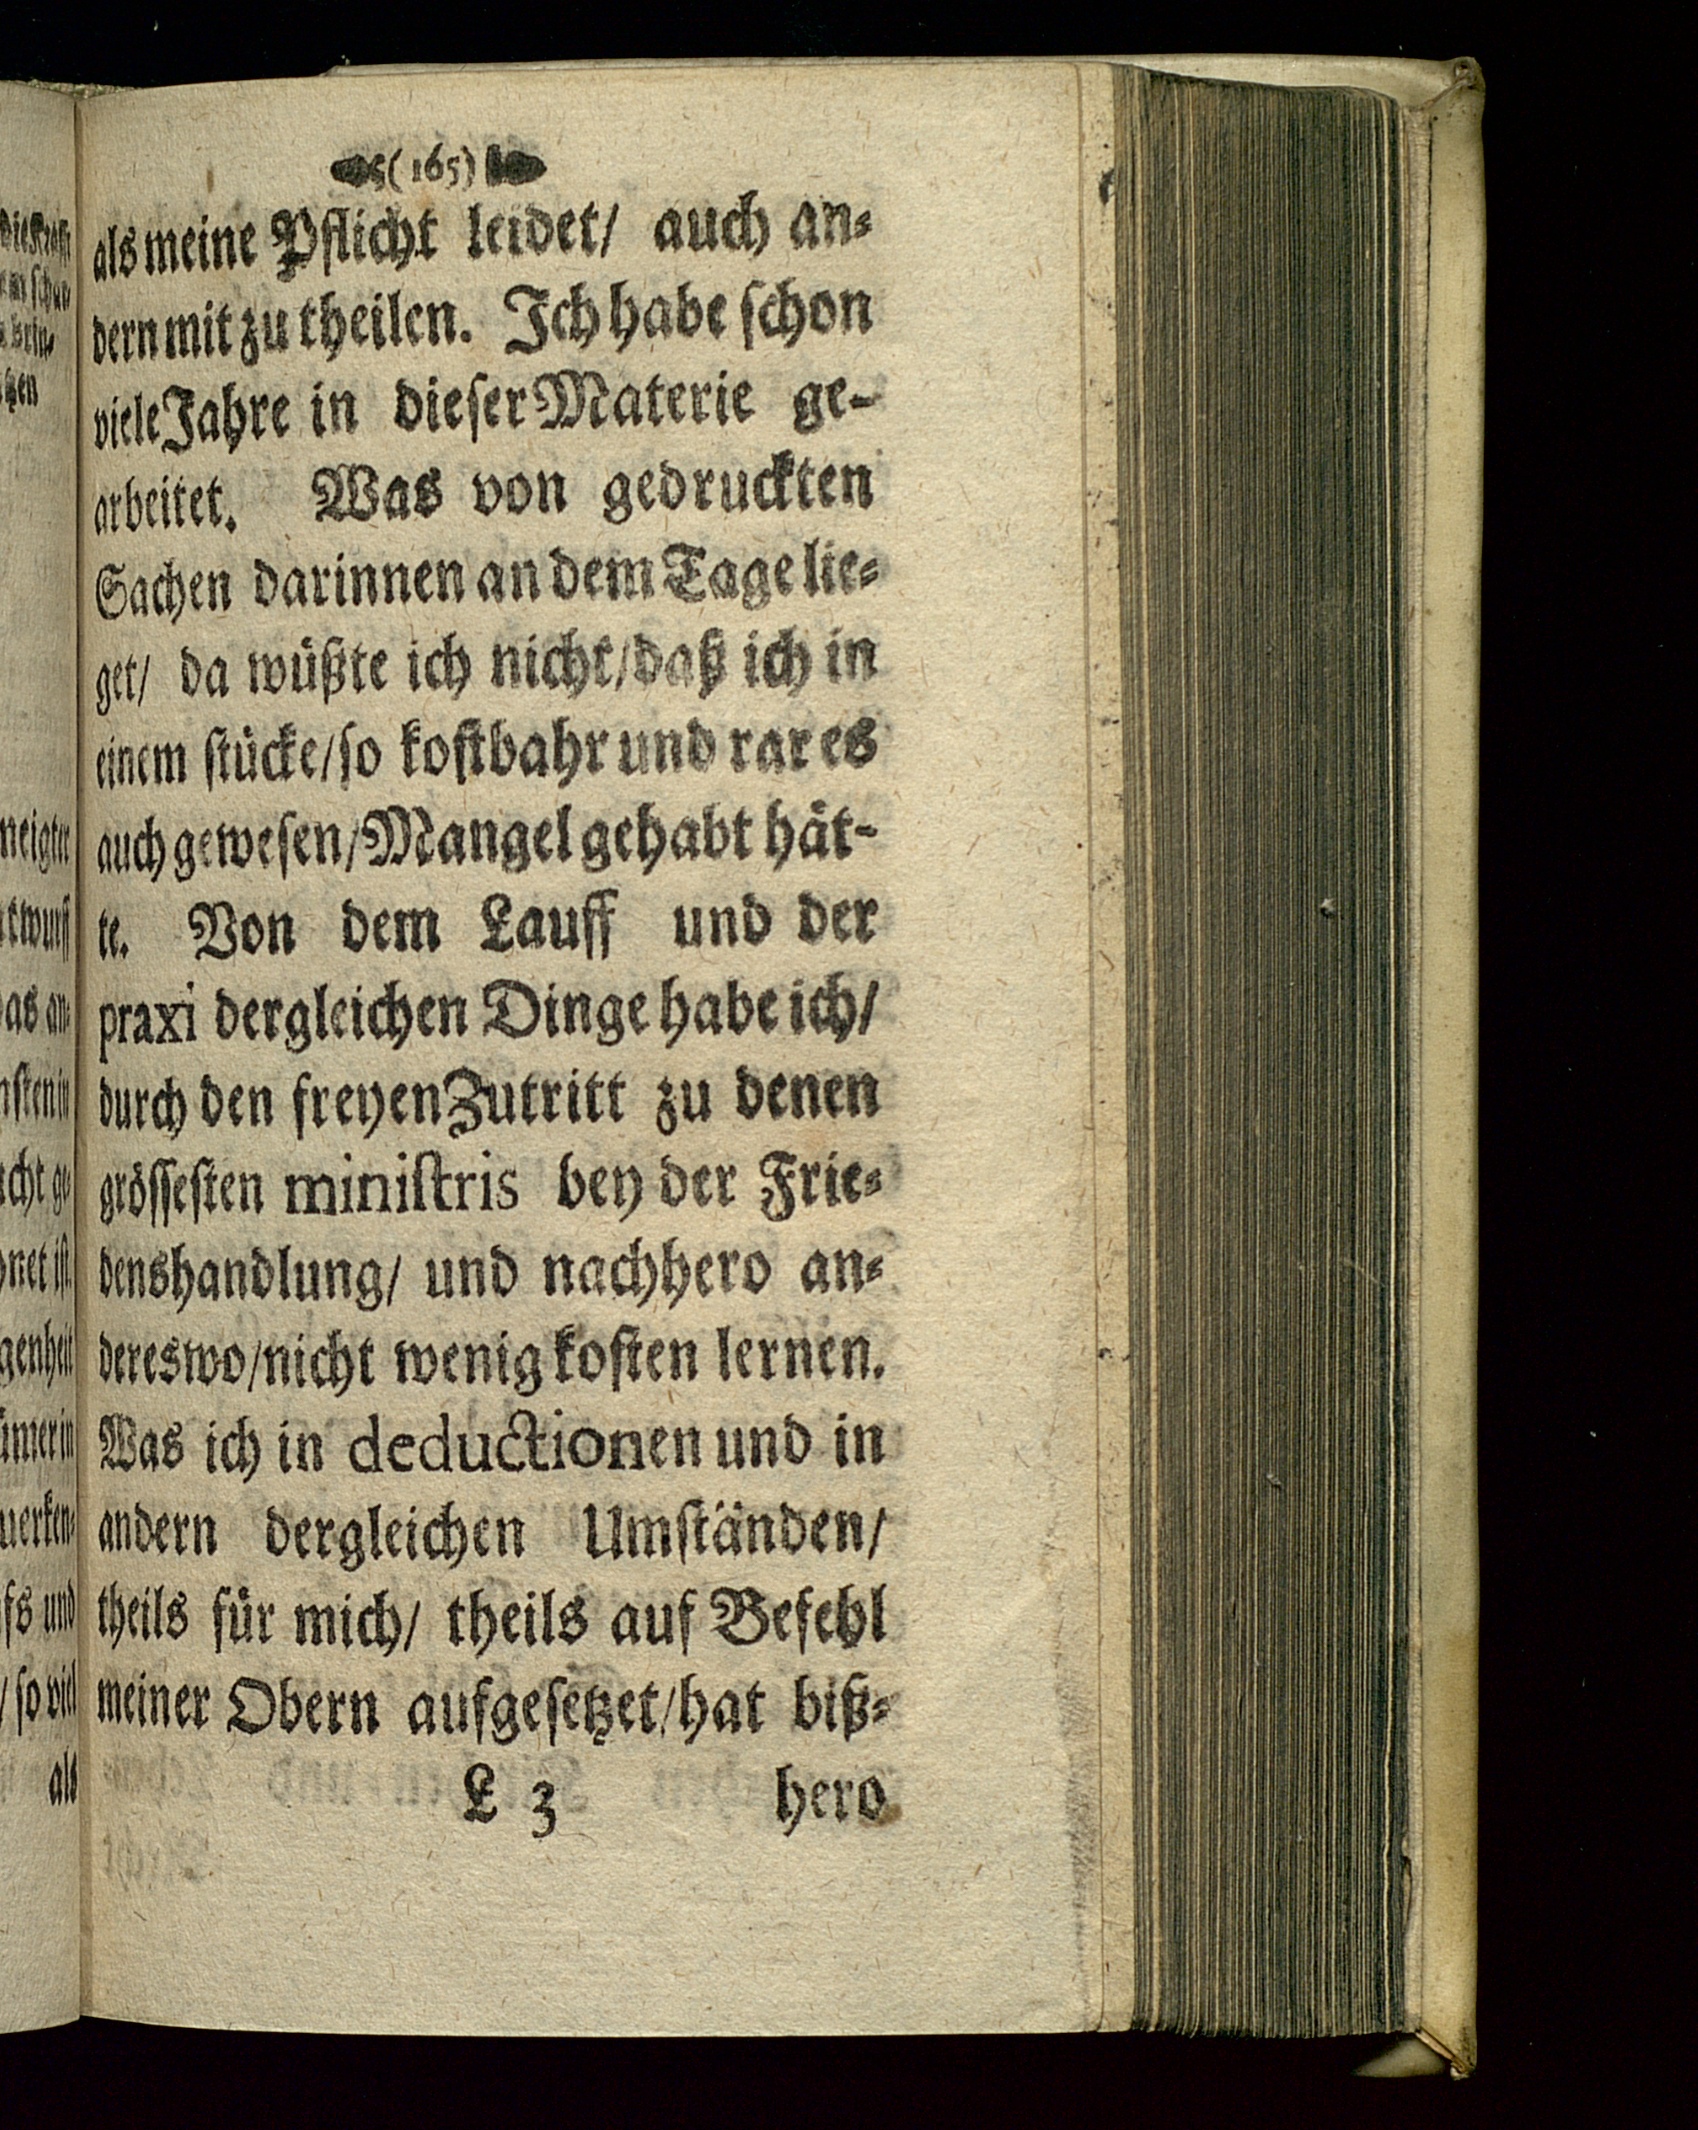 (165)
als meine Pflicht leidet/ auch an-
dern mit zu theilen. Ich habe schon
viele Jahre in dieser Materie ge-
arbeitet. Was von gedruckten
Sachen darinnen an dem Tage lie-
get/ da wüßte ich nicht/ daß ich in
einem stücke/ so kostbahr und rar es
auch gewesen/ Mangel gehabt hät-
te. Von dem Lauff und der
praxi dergleichen Dinge habe ich/
durch den freyen Zutritt zu denen
grössesten ministris bey der Frie-
denshandlung/ und nachhero an-
dereswo/ nicht wenig kosten lernen.
Was ich in deductionen und in
andern dergleichen Umständen/
theils für mich/ theils auf Befehl
meiner Obern aufgesetzet/ hat biß-
L 3 hero